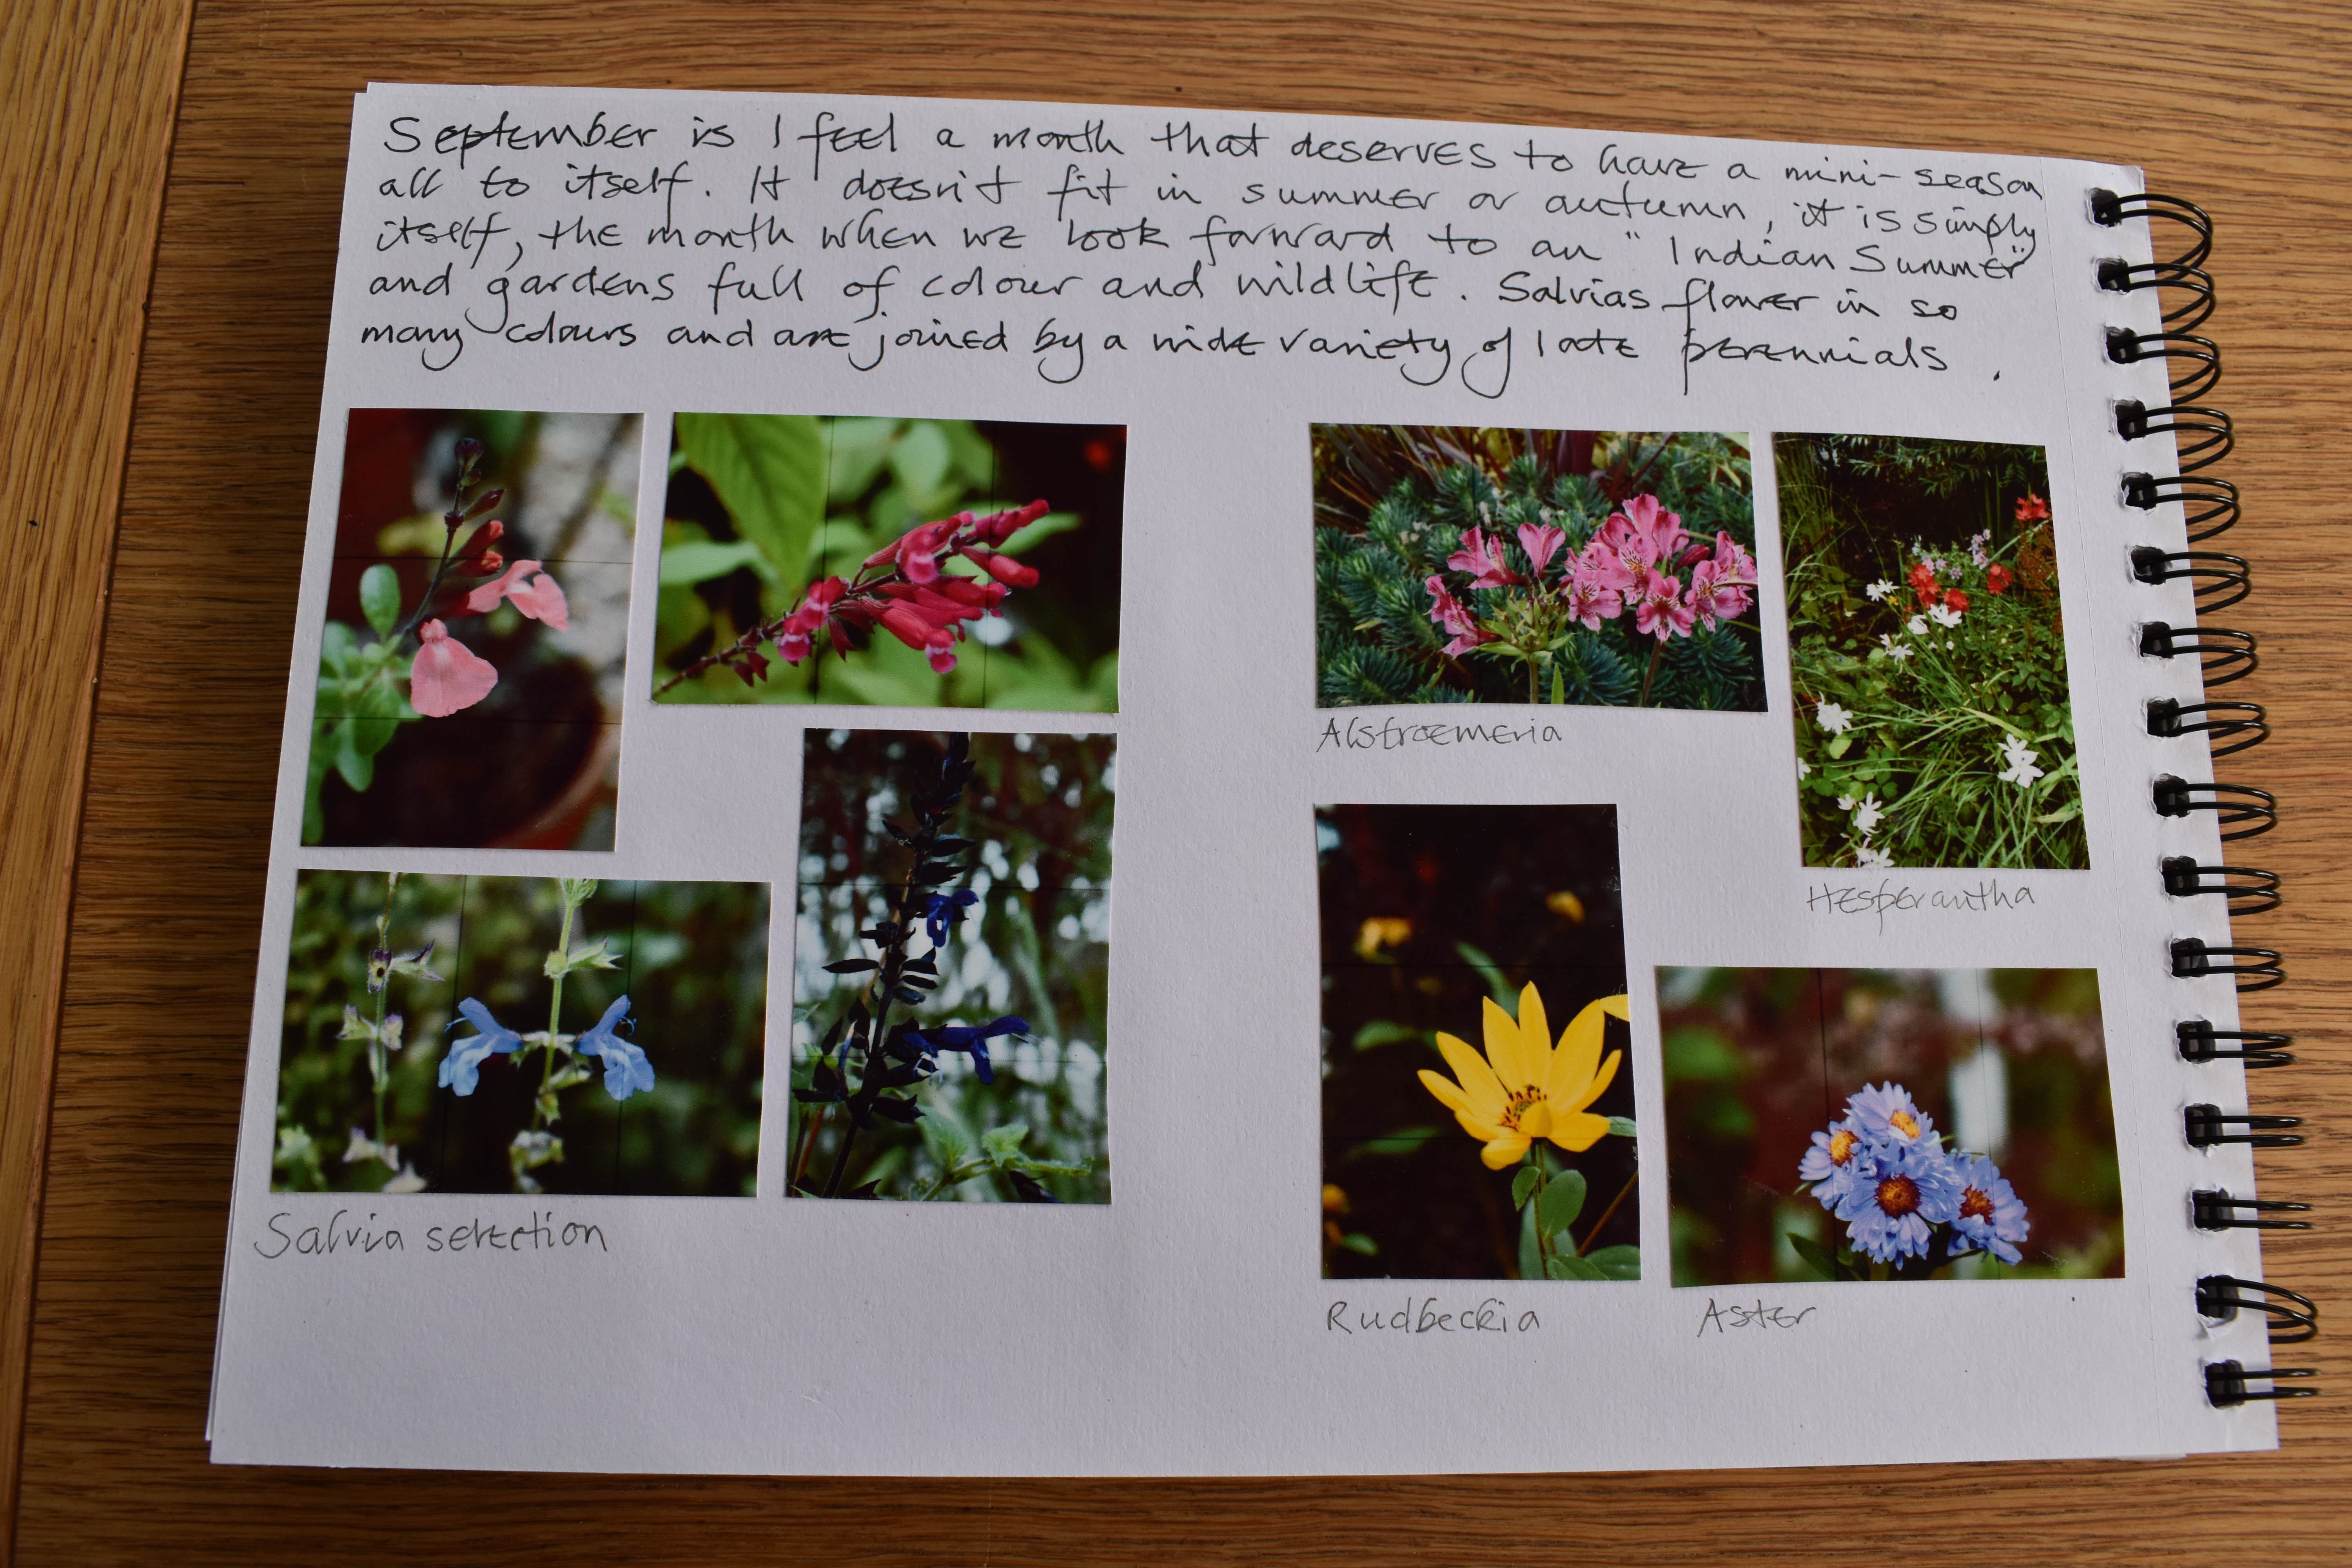 September is I feel a month that deserves to have a mini-season
all to itself. It doesn't fit in summer or autumn, it is simply
itself, the month when we look forward to an "Indian Summer"
and gardens full of colour and wildlife. Salvias flower in so
many colours and are joined by a wide variety of late perennials.
Alstroemeria
Hesperantha
Salvia selection
Rudbeckia
Aster